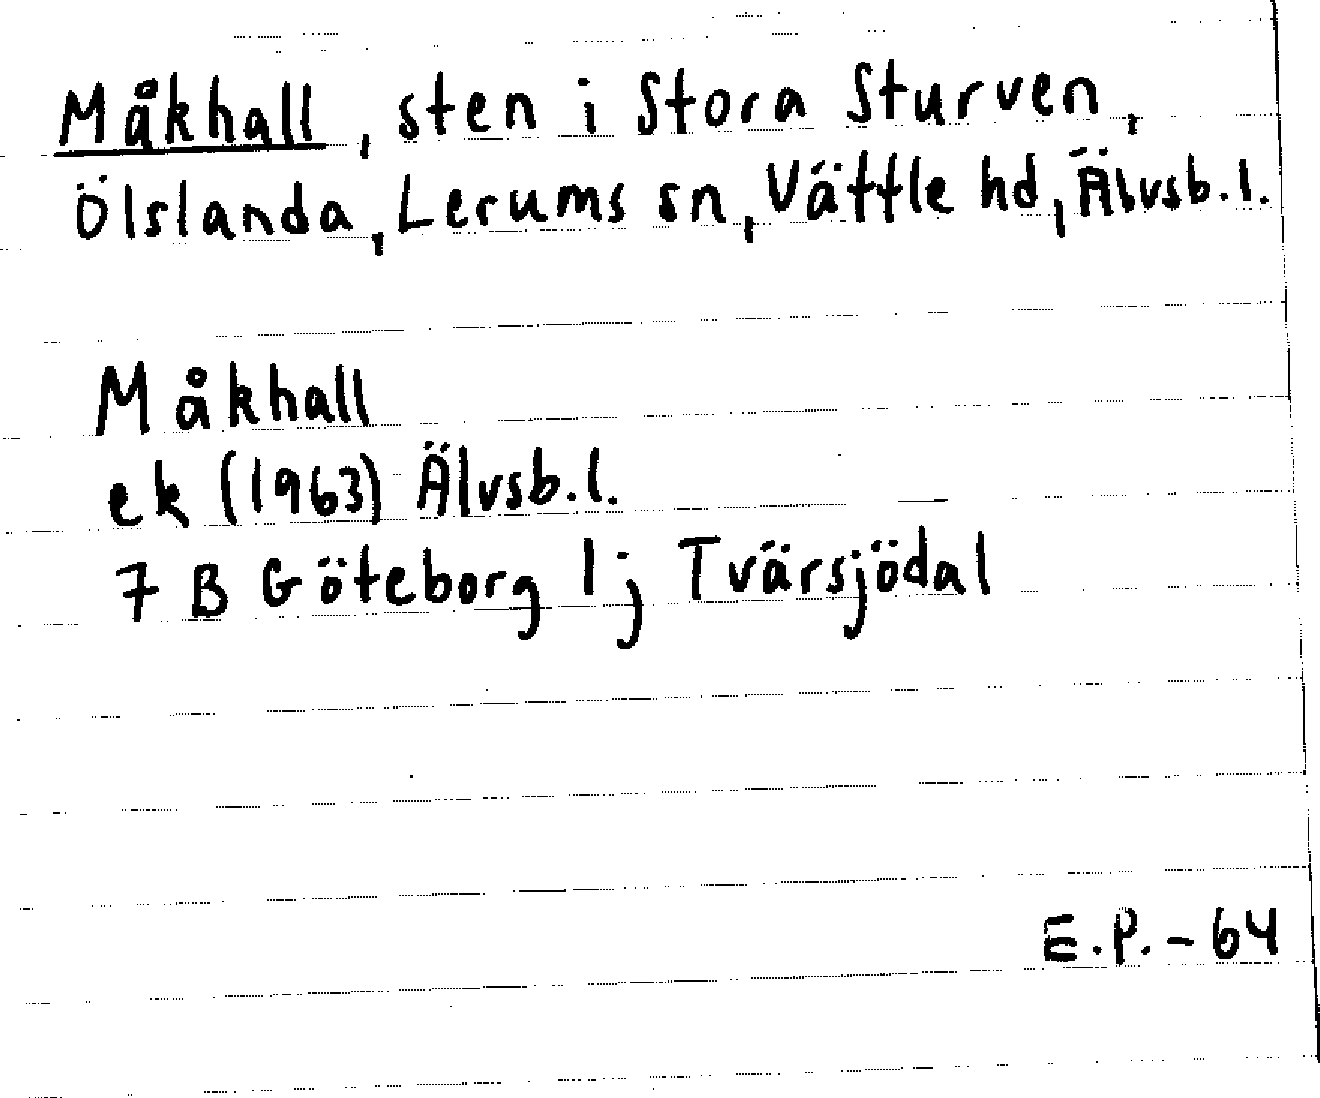 Måkhall, sten i Stora Sturven,
Ölslanda, Lerums sn, Vättle hd, Älvsb. l.
Måkhall
ek (1963) Älvsb. l.
7 B Göteborg 1j Tvärsjödal
E.P. - 64